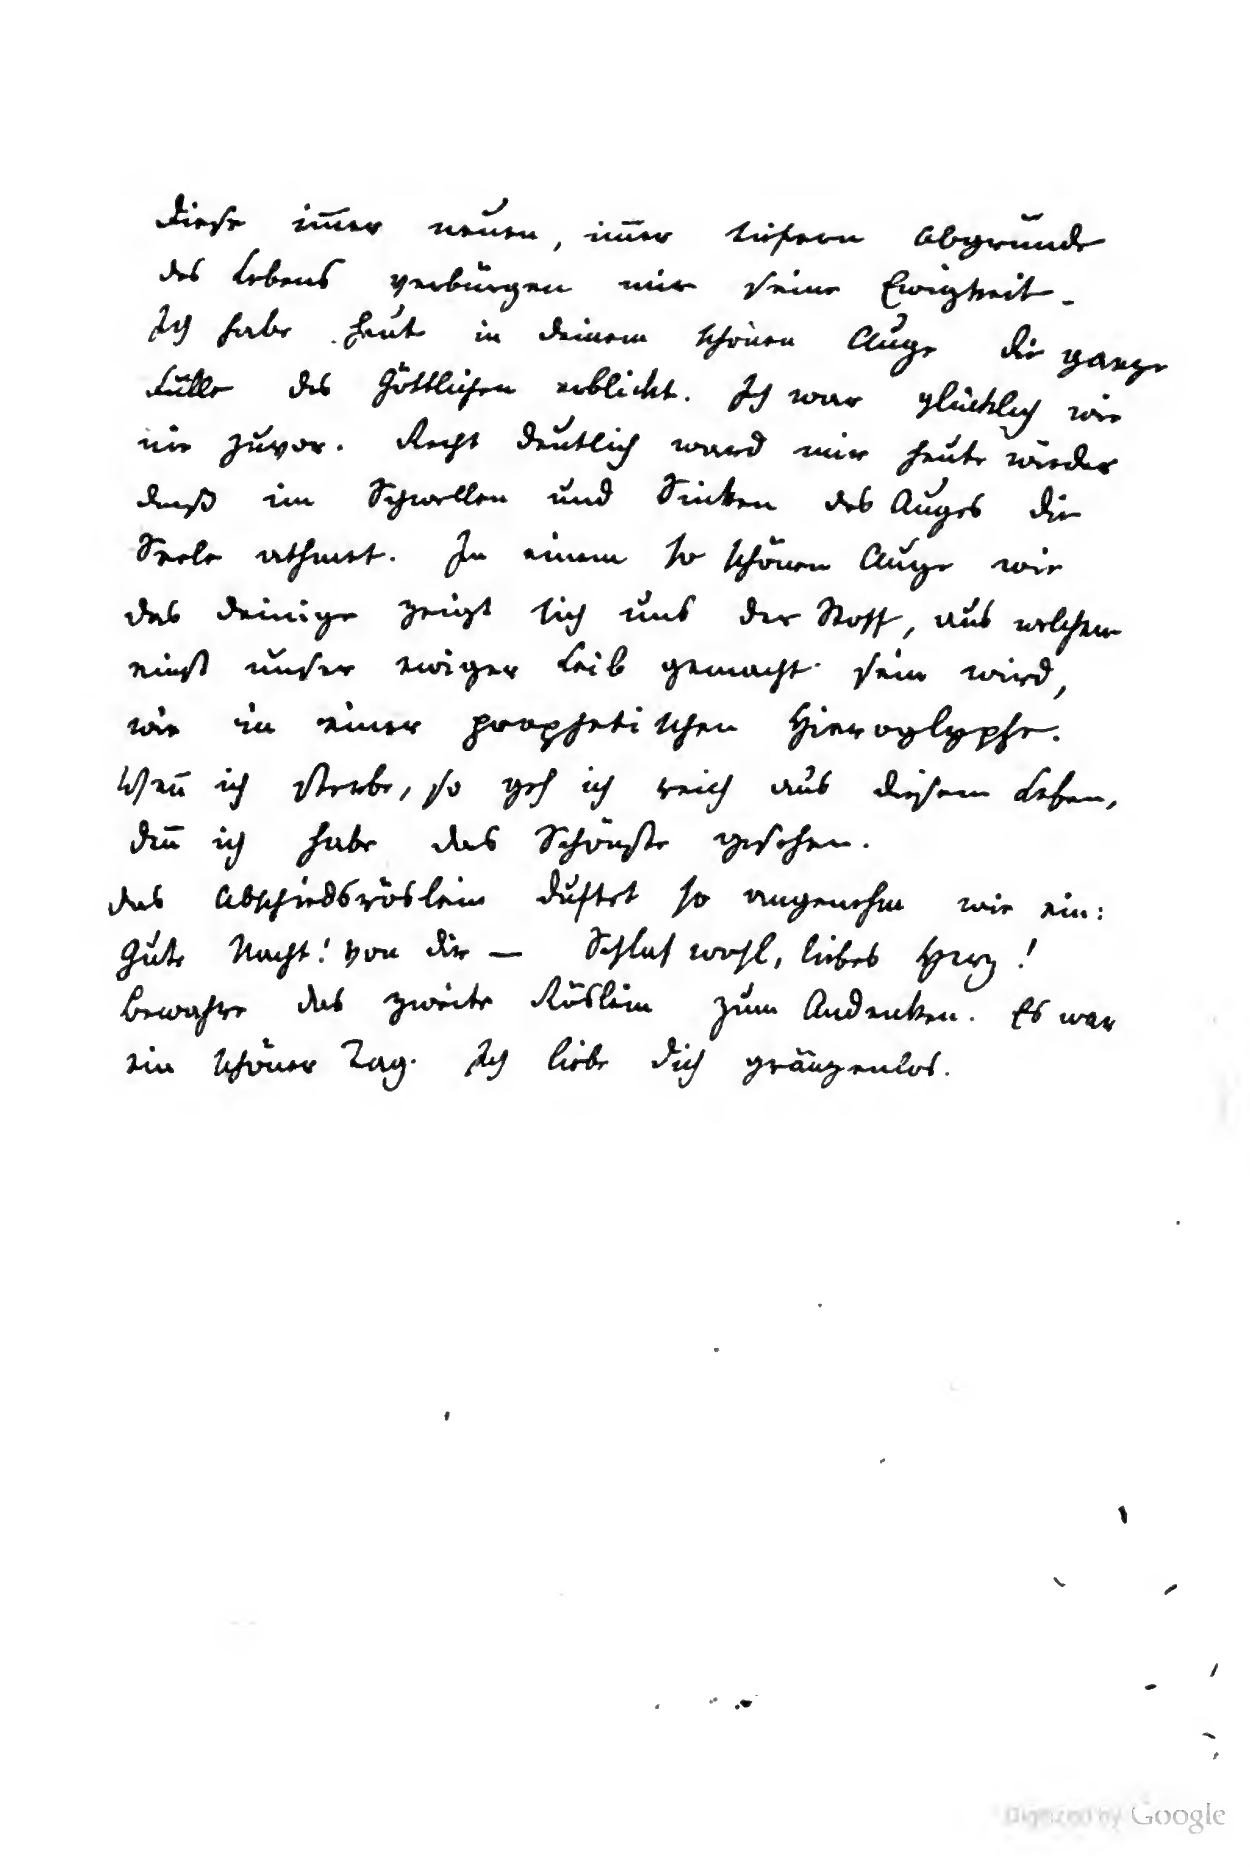 Diese im̄er neuen, im̄er tiefern Abgründe
des Lebens verbürgen mir seine Ewigkeit.
Ich habe heut in deinem schönen Auge die ganze
Fülle des Göttlichen erblickt. Ich war glücklich wie
nie zuvor. Recht deutlich ward mir heute wieder
daß im Schwellen und Sinken des Auges die
Seele athmet. In einem so schönen Auge wie
das deinige zeigt sich uns der Stoff, aus welchem
einst unser ewiger Leib gemacht sein wird,
wie in einer prophetischen Hieroglyphe.
Wen̄ ich sterbe, so geh ich reich aus diesem Leben,
den̄ ich habe das Schönste gesehen.
Das Abschiedsröslein duftet so angenehm wie ein:
Gute Nacht! von dir — Schlaf wohl, liebes Herz!
Bewahre das zweite Röslein zum Andenken. Es war
ein schöner Tag. Ich liebe dich gränzenlos.
Digitized by Google